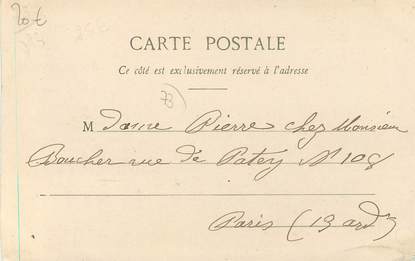 20 t
CARTE POSTALE
Ce côté est exclusivement réservé à l'adresse
M Dame Pierre chez Monsieur
Boucher rue de Patey N 108
Paris (13 ard